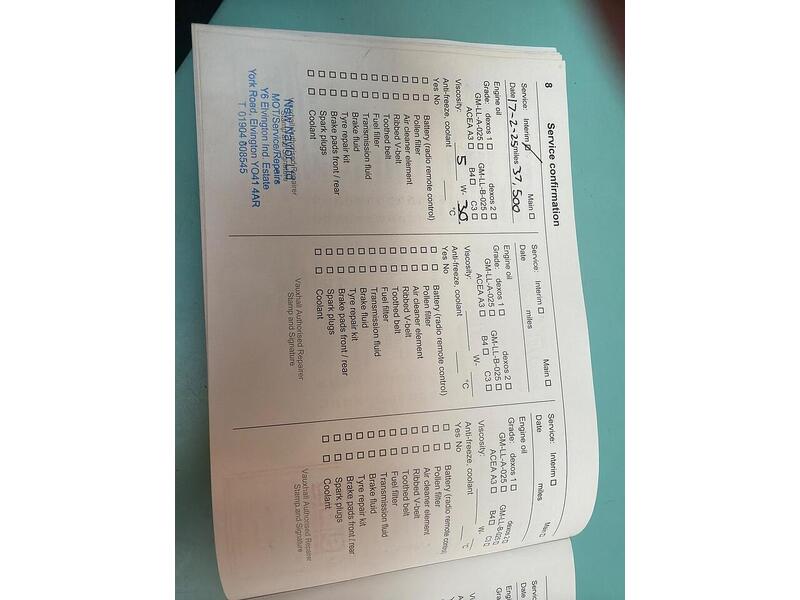 8 Service confirmation
Service: Interim ☑ Main ☐
Date 17-2-25 miles 37,500
Engine oil
Grade: dexos 1 ☐ dexos 2 ☐
GM-LL-A-025 ☐ GM-LL-B-025 ☐
ACEA A3 ☐ B4 ☐ C3 ☐
Viscosity: 5 W- 30
Anti-freeze, coolant °C
Yes No
☐ ☐ Battery (radio remote control)
☐ ☐ Pollen filter
☐ ☐ Air cleaner element
☐ ☐ Ribbed V-belt
☐ ☐ Toothed belt
☐ ☐ Fuel filter
☐ ☐ Transmission fluid
☐ ☐ Brake fluid
☐ ☐ Tyre repair kit
☐ ☐ Brake pads front / rear
☐ ☐ Spark plugs
☐ ☐ Coolant
Vauxhall Authorised Repairer
Stamp and Signature
Naylor Ltd
MOT/Service/Repairs
Y6 Elvington Ind. Estate
York Road, Elvington YO41 4AR
T. 01904 608545
Service: Interim ☐ Main ☐
Date miles
Engine oil
Grade: dexos 1 ☐ dexos 2 ☐
GM-LL-A-025 ☐ GM-LL-B-025 ☐
ACEA A3 ☐ B4 ☐ C3 ☐
Viscosity: W-
Anti-freeze, coolant °C
Yes No
☐ ☐ Battery (radio remote control)
☐ ☐ Pollen filter
☐ ☐ Air cleaner element
☐ ☐ Ribbed V-belt
☐ ☐ Toothed belt
☐ ☐ Fuel filter
☐ ☐ Transmission fluid
☐ ☐ Brake fluid
☐ ☐ Tyre repair kit
☐ ☐ Brake pads front / rear
☐ ☐ Spark plugs
☐ ☐ Coolant
Vauxhall Authorised Repairer
Stamp and Signature
Service: Interim ☐ Main ☐
Date miles
Engine oil
Grade: dexos 1 ☐ dexos 2 ☐
GM-LL-A-025 ☐ GM-LL-B-025 ☐
ACEA A3 ☐ B4 ☐ C3 ☐
Viscosity: W-
Anti-freeze, coolant °C
Yes No
☐ ☐ Battery (radio remote control)
☐ ☐ Pollen filter
☐ ☐ Air cleaner element
☐ ☐ Ribbed V-belt
☐ ☐ Toothed belt
☐ ☐ Fuel filter
☐ ☐ Transmission fluid
☐ ☐ Brake fluid
☐ ☐ Tyre repair kit
☐ ☐ Brake pads front / rear
☐ ☐ Spark plugs
☐ ☐ Coolant
Vauxhall Authorised Repairer
Stamp and Signature